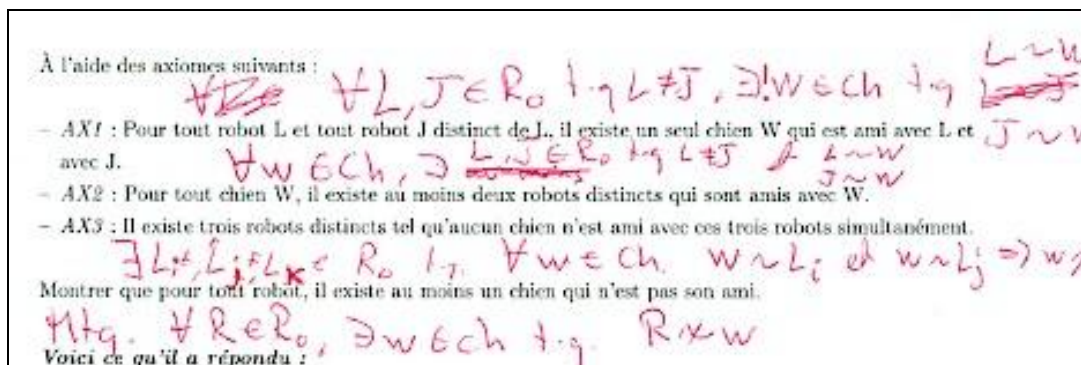 À l'aide des axiomes suivants :
∀L, J ∈ R₀ t.q L ≠ J, ∃!W ∈ Ch t.q L ~ W
J ~ W
– AX1 : Pour tout robot L et tout robot J distinct de L, il existe un seul chien W qui est ami avec L et
avec J.
∀w ∈ Ch, ∃ L, J ∈ R₀ t.q L ≠ J et L ~ W
J ~ W
– AX2 : Pour tout chien W, il existe au moins deux robots distincts qui sont amis avec W.
– AX3 : Il existe trois robots distincts tel qu'aucun chien n'est ami avec ces trois robots simultanément.
∃ Lᵢ ≠ Lⱼ ≠ Lₖ ∈ R₀ t.q. ∀w ∈ Ch w ~ Lᵢ et w ~ Lⱼ ⇒ w ≁
Montrer que pour tout robot, il existe au moins un chien qui n'est pas son ami.
Mtq. ∀R ∈ R₀, ∃w ∈ Ch t.q. R ≁ w
Voici ce qu'il a répondu :